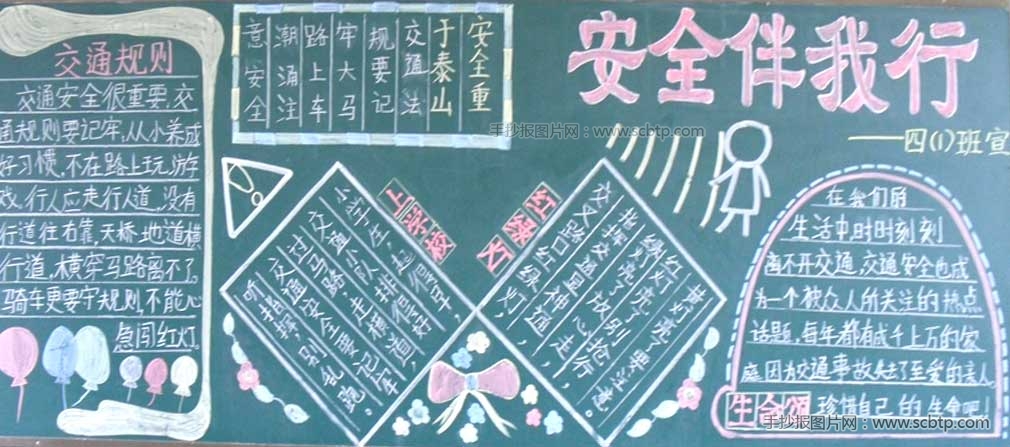 交通规则
交通安全很重要,交
通规则要记牢;从小养成
好习惯,不在路上玩游
戏,行人应走行人道,没有
行道往右靠,天桥地道横
行道,横穿马路离不了。
骑车更要守规则,不能心
急闯红灯。
安全重
于泰山
交通法
规要记
牢大马
路上车
潮涌注
意安全
手抄报图片网:www.scbtp.com
安全伴我行
——四(1)班宣
上学校
小学生,起得早,
交通小队排得好
过马路,走横道,
交通安全要记牢
听指挥,别乱跑。
红绿灯
交叉路口红绿灯,
指挥交通显神通,
绿灯亮了放心走,
红灯亮了别抢行
黄灯亮了要注意。
在我们的
生活中时时刻刻
离不开交通,交通安全也成
为一个被众人所关注的热点
话题,每年都有成千上万的家
庭因为交通事故失去了至爱的亲人。
珍惜自己的生命吧!
手抄报图片网:www.scbtp.com